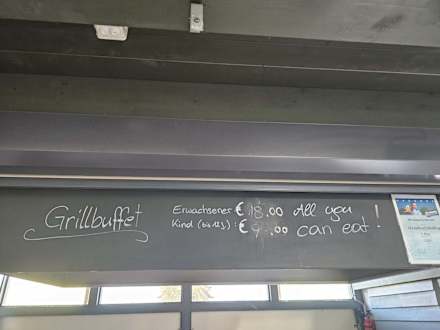 Grillbuffet
Erwachsener € 18.00 All you
Kind (bis 12J): € 9.00 can eat!